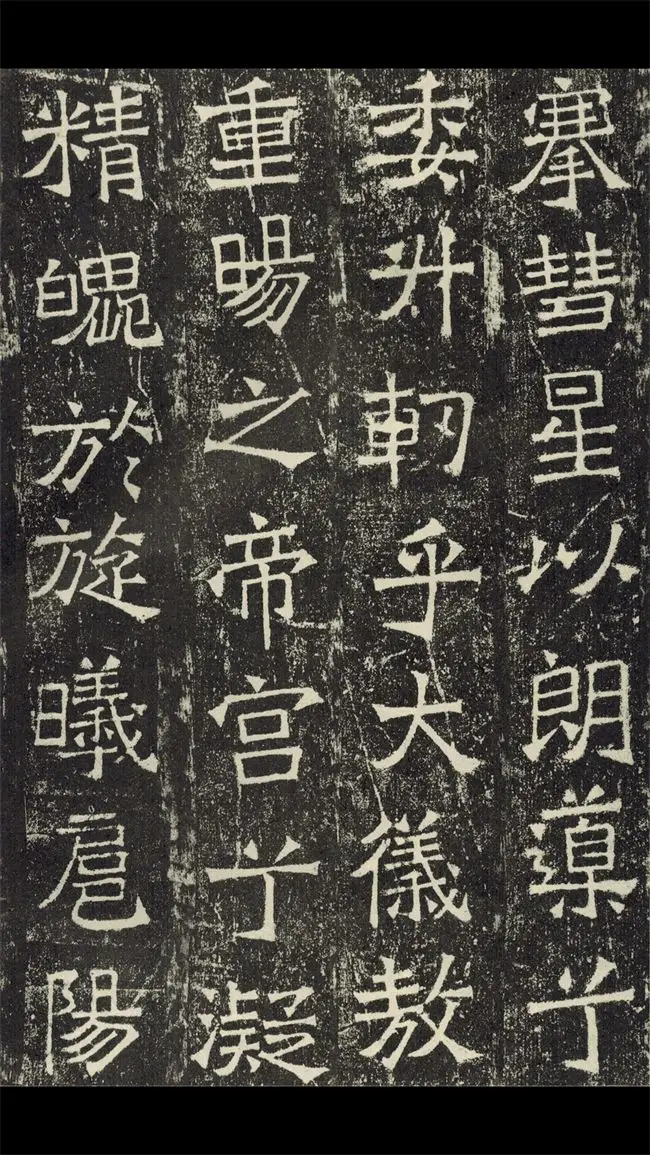 搴彗星以朗導兮
委升軔乎大儀敖
重暘之帝宮兮凝
精魄於旋曦扈陽